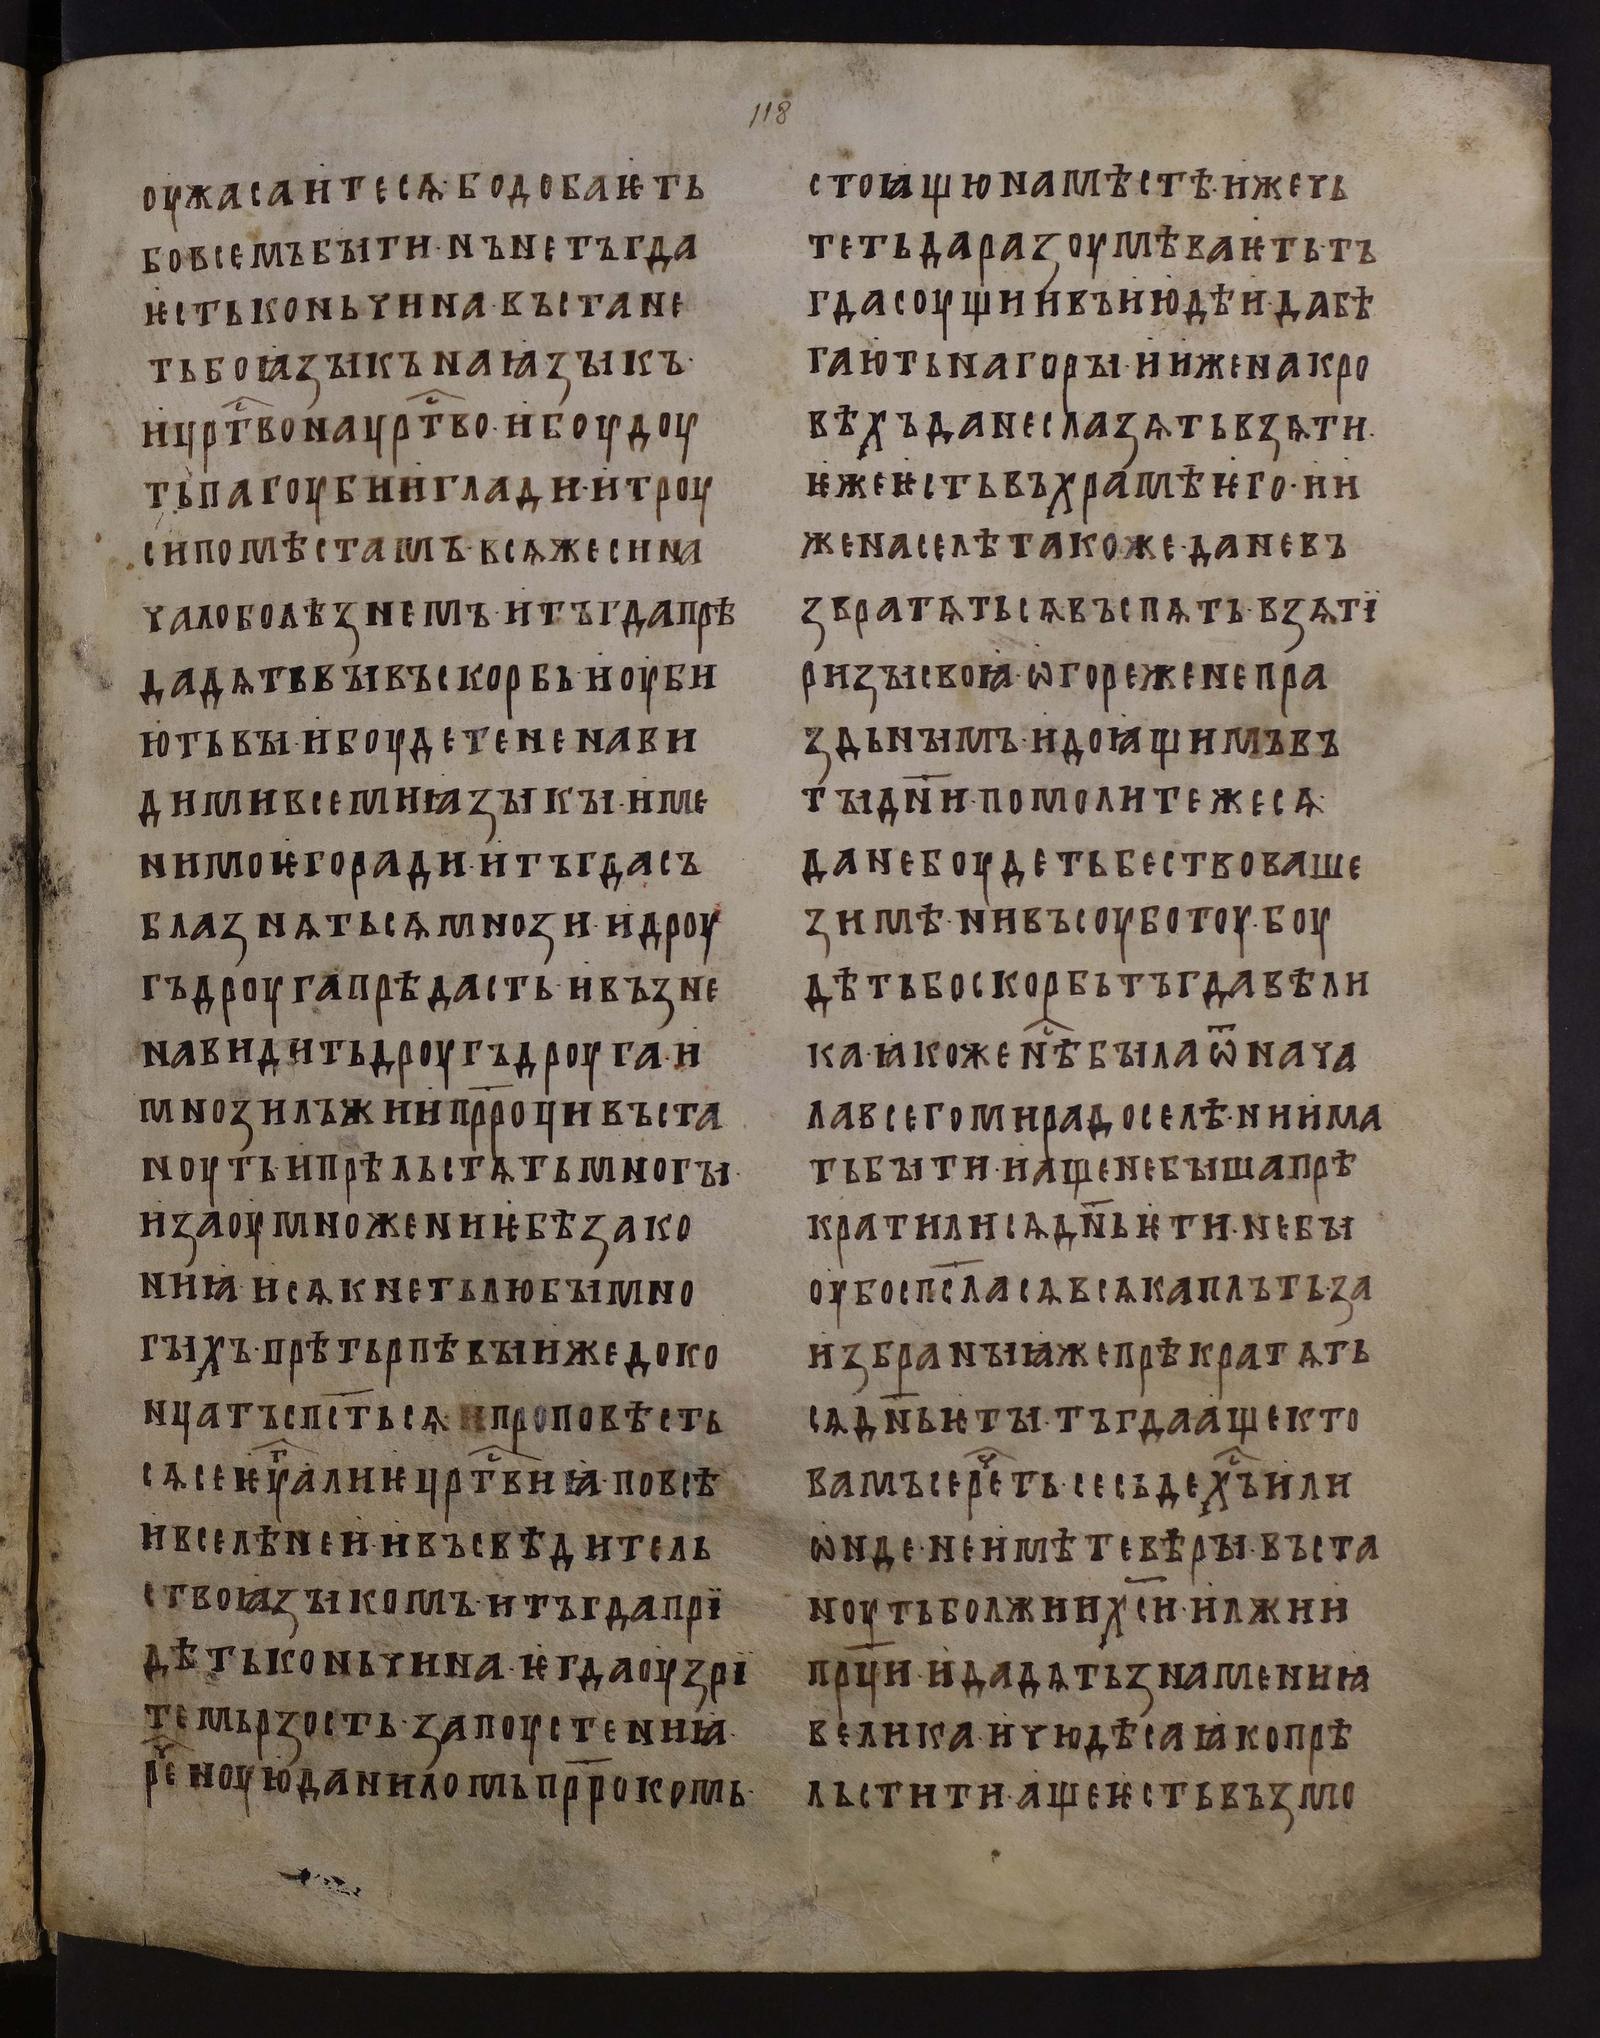 118
оужасаитесѧ· бодобаѥть
бовсемъбꙑти· нънетъгда
ѥстьконьчина· въстане
тьбоꙗзꙑкънаꙗзꙑкъ·
ицр҃тⷭ҇вонацр҃тⷭ҇во· ибоудоу
тьпагоубииглади· итроу
сипомѣстамъ· всѧжесина
чалоболѣзнемъ· итъгдапрѣ
дадѧтьвꙑвъскорбь· иоуби
ютьвꙑ· ибоудетененави
димивсемиꙗзꙑкꙑ· име
нимоѥгоради· итъгдасъ
блазнѧтьсѧмнози· идроу
гъдроугапрѣдасть· ивъзне
навидитьдроугъдроуга· и
мнозилъжиипрⷪ҇роцивъста
ноуть· ипрѣльстѧтьмногꙑ·
изаоумножениѥбѣзако
ниꙗ· исѧкнетьлюбꙑмно
гꙑхъ· прѣтьрпѣвꙑижедоко
нцатъсп҃стьсѧ· ипроповѣсть
сѧсеѥѵⷢ҇алиѥцр҃тⷭ҇виꙗ· повсѣ
ивселѣнеи· ивъсвѣдитель
ствоꙗзꙑкомъ· итъгдапрї
дѣтьконьчина· ѥгдаоузрї
темьрзость· запоустениꙗ·
рⷱ҇еноуюданиломьпр҃рокомь·
стоꙗщюнамѣстѣ· ижечь
тетьдаразоумѣваѥть· тъ
гдасоущиивъиюдѣи· дабѣ
гаютьнагорꙑ· ииженакро
вѣхъданеслазѧтьвзѧти·
ѥжеѥстьвъхрамѣѥго· ии
женаселѣтакоже· даневъ
звратѧтьсѧвъспѧть· взѧтї
ризꙑсвоꙗ· ѡгореженепра
здьнꙑмъ· идоꙗщимъвъ
тꙑдн҃и· помолитежесѧ·
данебоудетьбествоваше
зимѣ· нивъсоуботоу· боу
дѣтьбоскорбьтъгдавѣли
ка· ꙗкоженⷭ҇ѣбꙑлаѿнача
лавсегомирадоселѣ· ниима
тьбꙑти· иащенебꙑшапрѣ
кратилисѧдн҃ьѥти· небꙑ
оубосп҃сласѧвсѧкаплъть· за
избранꙑꙗжепрѣкратѧть
сѧдн҃ьѥтꙑ· тъгдаащекто
вамъсерⷱ҇еть· сесьдехⷭ҇ъили
ѡнде· неимѣтевѣрꙑ· въста
ноутьболжиих҃си· илжии
пр҃ци· идадѧтьзнамениꙗ
велика· ичюдѣсаꙗкопрѣ
льстити· ащеѥстьвъзмо